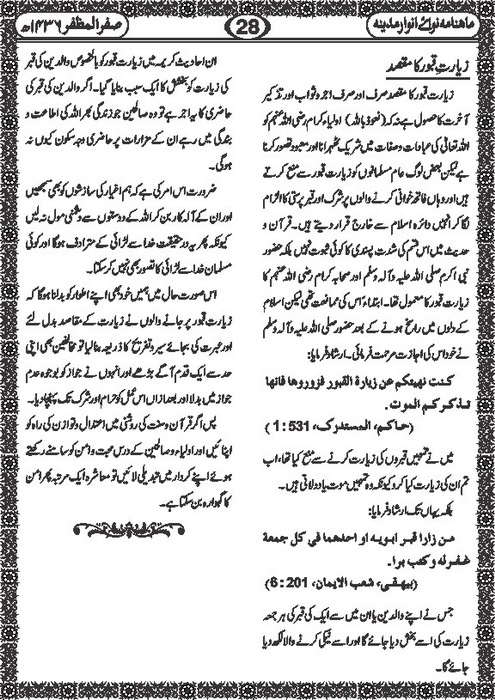 ماھنامہ نوائے انوارِ مدینہ
28
صفر المظفر ۱۴۳۶ھ
زیارتِ قبور کا مقصد
زیارت قبور کا مقصد صرف اور صرف اجر و ثواب اور تذکیر
آخرت کا حصول ہے نہ کہ (نعوذ باللہ) اولیاء کرام رضی اللہ عنہم کو
اللہ تعالیٰ کی عبادات و صفات میں شریک ٹھہرانا اور معبود تصور کرنا
ہے لیکن بعض لوگ عام مسلمانوں کو زیارت قبور سے منع کرتے
ہیں اور وہاں فاتحہ خوانی کرنے والوں پر شرک اور قبر پرستی کا الزام
لگا کر انہیں دائرہ اسلام سے خارج قرار دیتے ہیں۔ قرآن و
حدیث میں اس قسم کی شدت پسندی کا کوئی ثبوت نہیں بلکہ حضور
نبی اکرم صلی اللہ علیہ و آلہ وسلم اور صحابہ کرام رضی اللہ عنہم کا
زیارت قبور کا معمول تھا۔ ابتداءً اس کی ممانعت تھی لیکن اسلام
کے دلوں میں راسخ ہونے کے بعد حضور صلی اللہ علیہ و آلہ وسلم
نے خود اس کی اجازت مرحمت فرمائی۔ ارشاد فرمایا:
کنت نھیتکم عن زیارۃ القبور فزوروھا فانھا
تذکرکم الموت.
(حاکم، المستدرک، 1:531)
میں نے تمہیں قبروں کی زیارت کرنے سے منع کیا تھا، اب
تم ان کی زیارت کیا کرو کیونکہ وہ تمہیں موت یاد دلاتی ہیں۔
بلکہ یہاں تک ارشاد فرمایا:
من زارا قبر ابویہ او احدھما فی کل جمعۃ
غفرلہ وکتب برا.
(بیہقی، شعب الایمان، 6:201)
جس نے اپنے والدین یا ان میں سے ایک کی قبر کی ہر جمعہ
زیارت کی اسے بخش دیا جائے گا اور اسے نیکی کرنے والا لکھ دیا
جائے گا۔
ان احادیث کریمہ میں زیارت قبور کو بالخصوص والدین کی قبر
کو بخشش کا ایک سبب بنایا گیا۔ اگر والدین کی قبر کی
حاضری کا یہ اجر ہے تو وہ صالحین جو زندگی بھر اللہ کی اطاعت و
بندگی میں رہے ان کے مزارات پر حاضری وجہ سکون کیوں نہ
ہو گی۔
ضرورت اس امر کی ہے کہ ہم اغیار کی سازشوں کو بھی سمجھیں
اور ان کے آلہ کار بن کر اللہ کے دوستوں سے دشمنی مول نہ لیں
کیونکہ پھر یہ در حقیقت خدا سے لڑائی کے مترادف ہوگا اور کوئی
مسلمان خدا سے لڑائی کا تصور بھی نہیں کر سکتا۔
اس صورت حال میں ہمیں خود بھی اپنے اطوار کو بدلنا ہوگا کہ
زیارت قبور پر جانے والوں نے زیارت کے مقاصد بدل لئے
اور عبرت کی بجائے سیر و تفریح کا ذریعہ بنا لیا تو مخالفین بھی اپنی
حد سے ایک قدم آگے بڑھے اور انہوں نے جواز کو بوجوہ عدم
جواز میں بدلا اور بعد ازاں اس عمل کو حرام اور شرک تک پہنچا دیا۔
پس اگر قرآن و سنت کی روشنی میں اعتدال و توازن کی راہ کو
اپنائیں اور اولیاء و صالحین کے درس محبت و امن کو سامنے رکھتے
ہوئے اپنے کردار میں تبدیلی لائیں تو معاشرہ ایک مرتبہ پھر امن
کا گہوارہ بن سکتا ہے۔